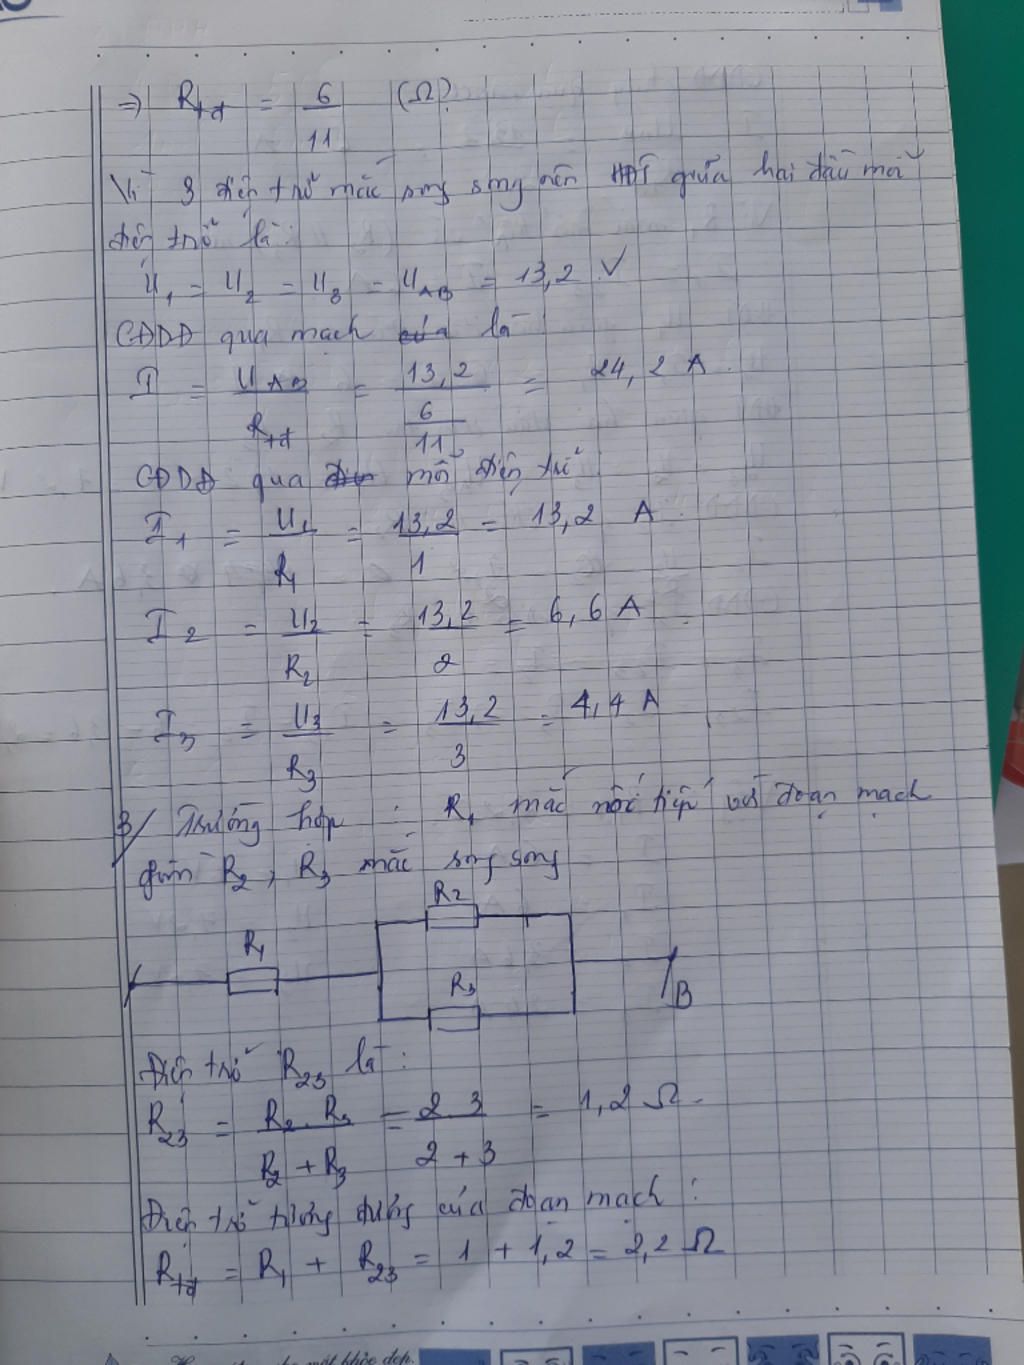 ⇒ Rtđ = 6/11 (Ω).
Vì 3 điện trở mắc song song nên HĐT giữa hai đầu mỗi
điện trở là:
U1 = U2 = U3 = UAB = 13,2 V
CĐDĐ qua mạch của là
I = UAB/Rtđ = 13,2/(6/11) = 24,2 A.
CĐDĐ qua điện mỗi điện trở
I1 = U1/R1 = 13,2/1 = 13,2 A.
I2 = U2/R2 = 13,2/2 = 6,6 A.
I3 = U3/R3 = 13,2/3 = 4,4 A
3/ Trường hợp : R1 mắc nối tiếp với đoạn mạch
gồm R2, R3 mắc song song
R2
R1
R3
B
Điện trở R23 là :
R23 = R2.R3/R2+R3 = 2.3/2+3 = 1,2 Ω.
Điện trở tương đương của đoạn mạch :
Rtđ = R1 + R23 = 1 + 1,2 = 2,2 Ω